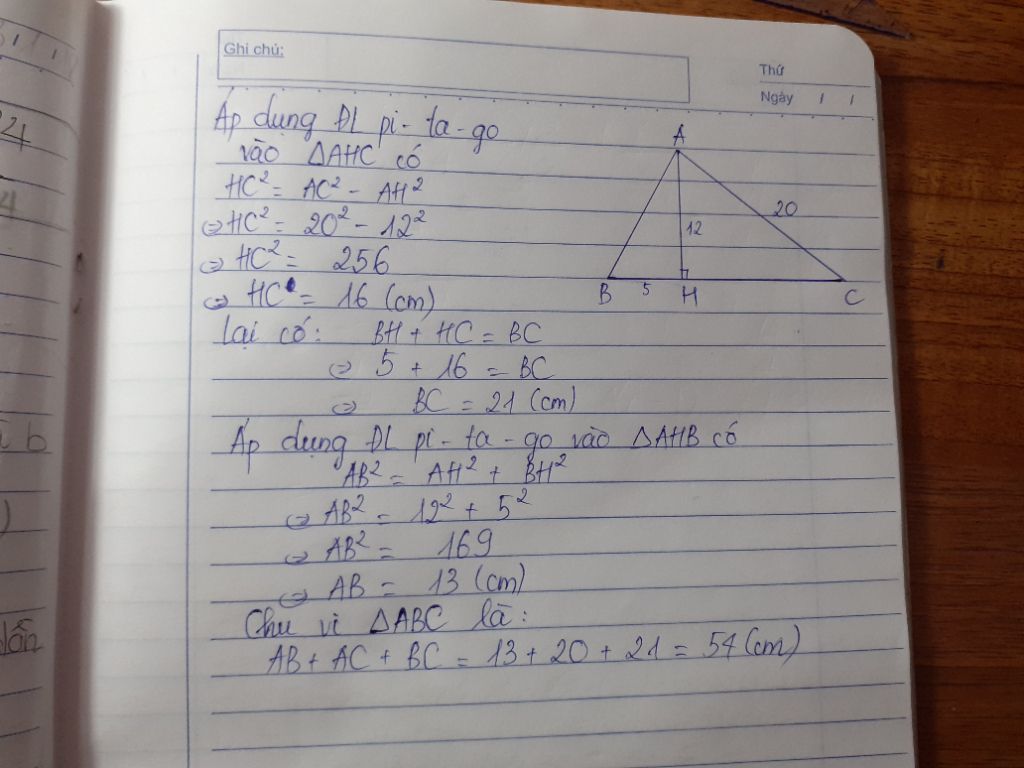 Ghi chú:
Thứ
Ngày / /
Áp dụng ĐL pi-ta-go
vào △AHC có
HC² = AC² - AH²
⇔ HC² = 20² - 12²
⇔ HC² = 256
⇔ HC = 16 (cm)
lại có: BH + HC = BC
⇔ 5 + 16 = BC
⇔ BC = 21 (cm)
Áp dụng ĐL pi-ta-go vào △AHB có
AB² = AH² + BH²
⇔ AB² = 12² + 5²
⇔ AB² = 169
⇔ AB = 13 (cm)
Chu vi △ABC là:
AB + AC + BC = 13 + 20 + 21 = 54 (cm)
A
20
12
B 5 H C